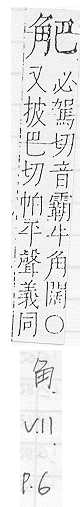 䶕必駕切音霸牛角開○
又披巴切怕平聲義同
角.
V.11
P.6